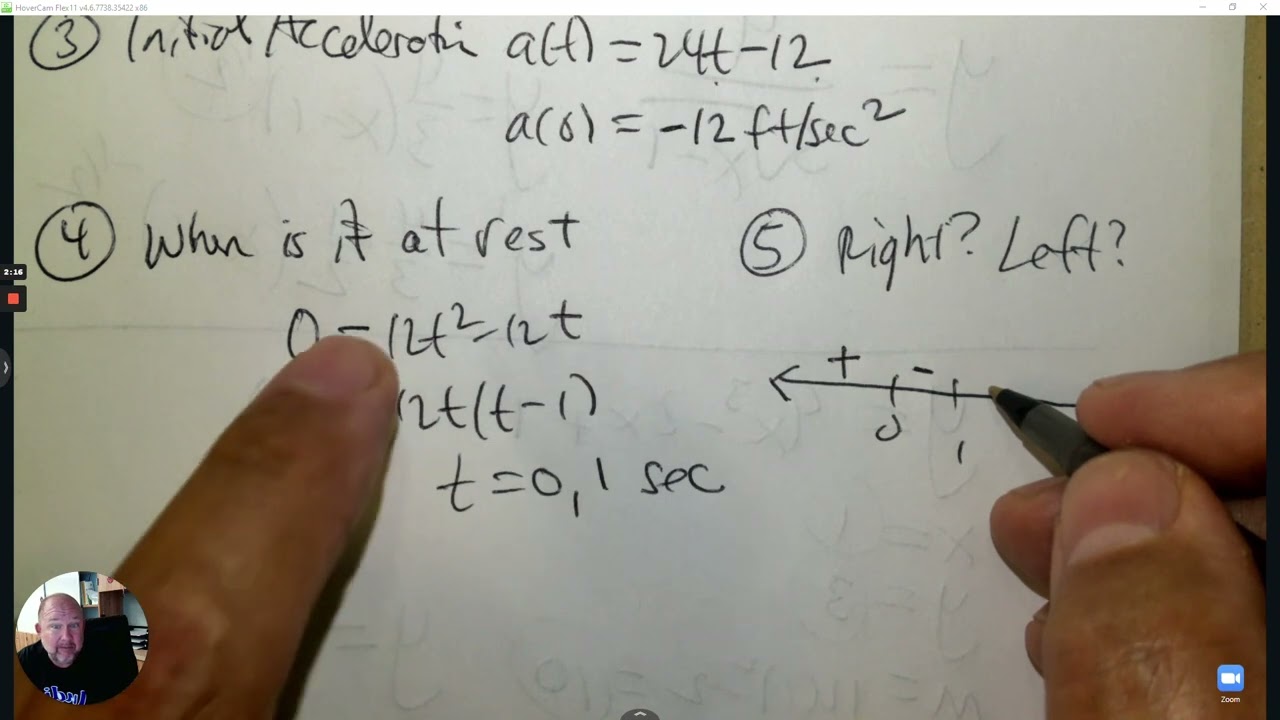 HoverCam Flex11 v4.6.7738.35422 x86
③ Initial Acceleratin a(t) = 24t - 12
a(0) = -12 ft/sec²
④ When is it at rest
⑤ Right? Left?
2:16
0 = 12t² - 12t
+ -
12t(t - 1)
0 1
t = 0, 1 sec
Zoom